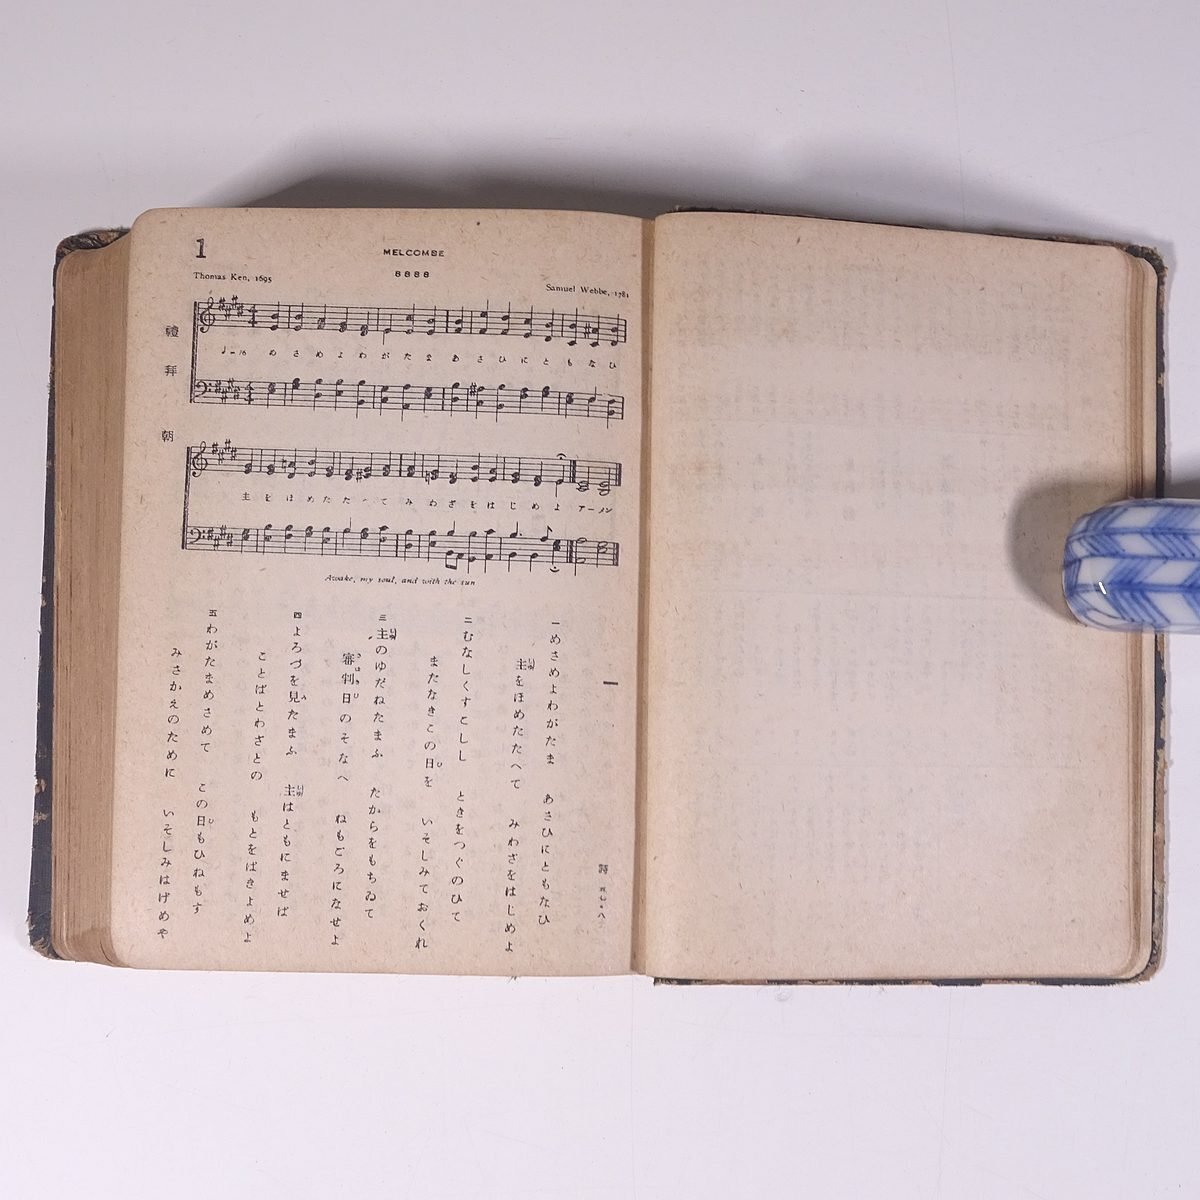 1
MELCOMBE
8888
Thomas Ken, 1695
Samuel Webbe, 1781
禮拜
朝
めさめよわがたまあさひにともなひ
主をほめたたへてみわざをはじめよ アーメン
Awake, my soul, and with the sun
一
詩
一 めさめよわがたま あさひにともなひ
主をほめたたへて みわざをはじめよ
二 むなしくすごしし ときをつぐのひて
またなきこの日を いそしみておくれ
三 主のゆだねたまふ たからをもちゐて
審判日のそなへ ねもごろになせよ
四 よろづを見たまふ 主はともにませば
ことばとわざとの もとをばきよめよ
五 わがたまめさめて この日もひねもす
みさかえのために いそしみはげめや